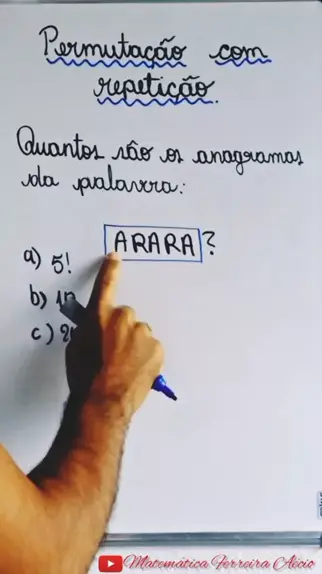 Permutação com
repetição.
Quantos são os anagramas
da palavra:
ARARA?
a) 5!
b)
c)
Matemática Ferreira Aécio